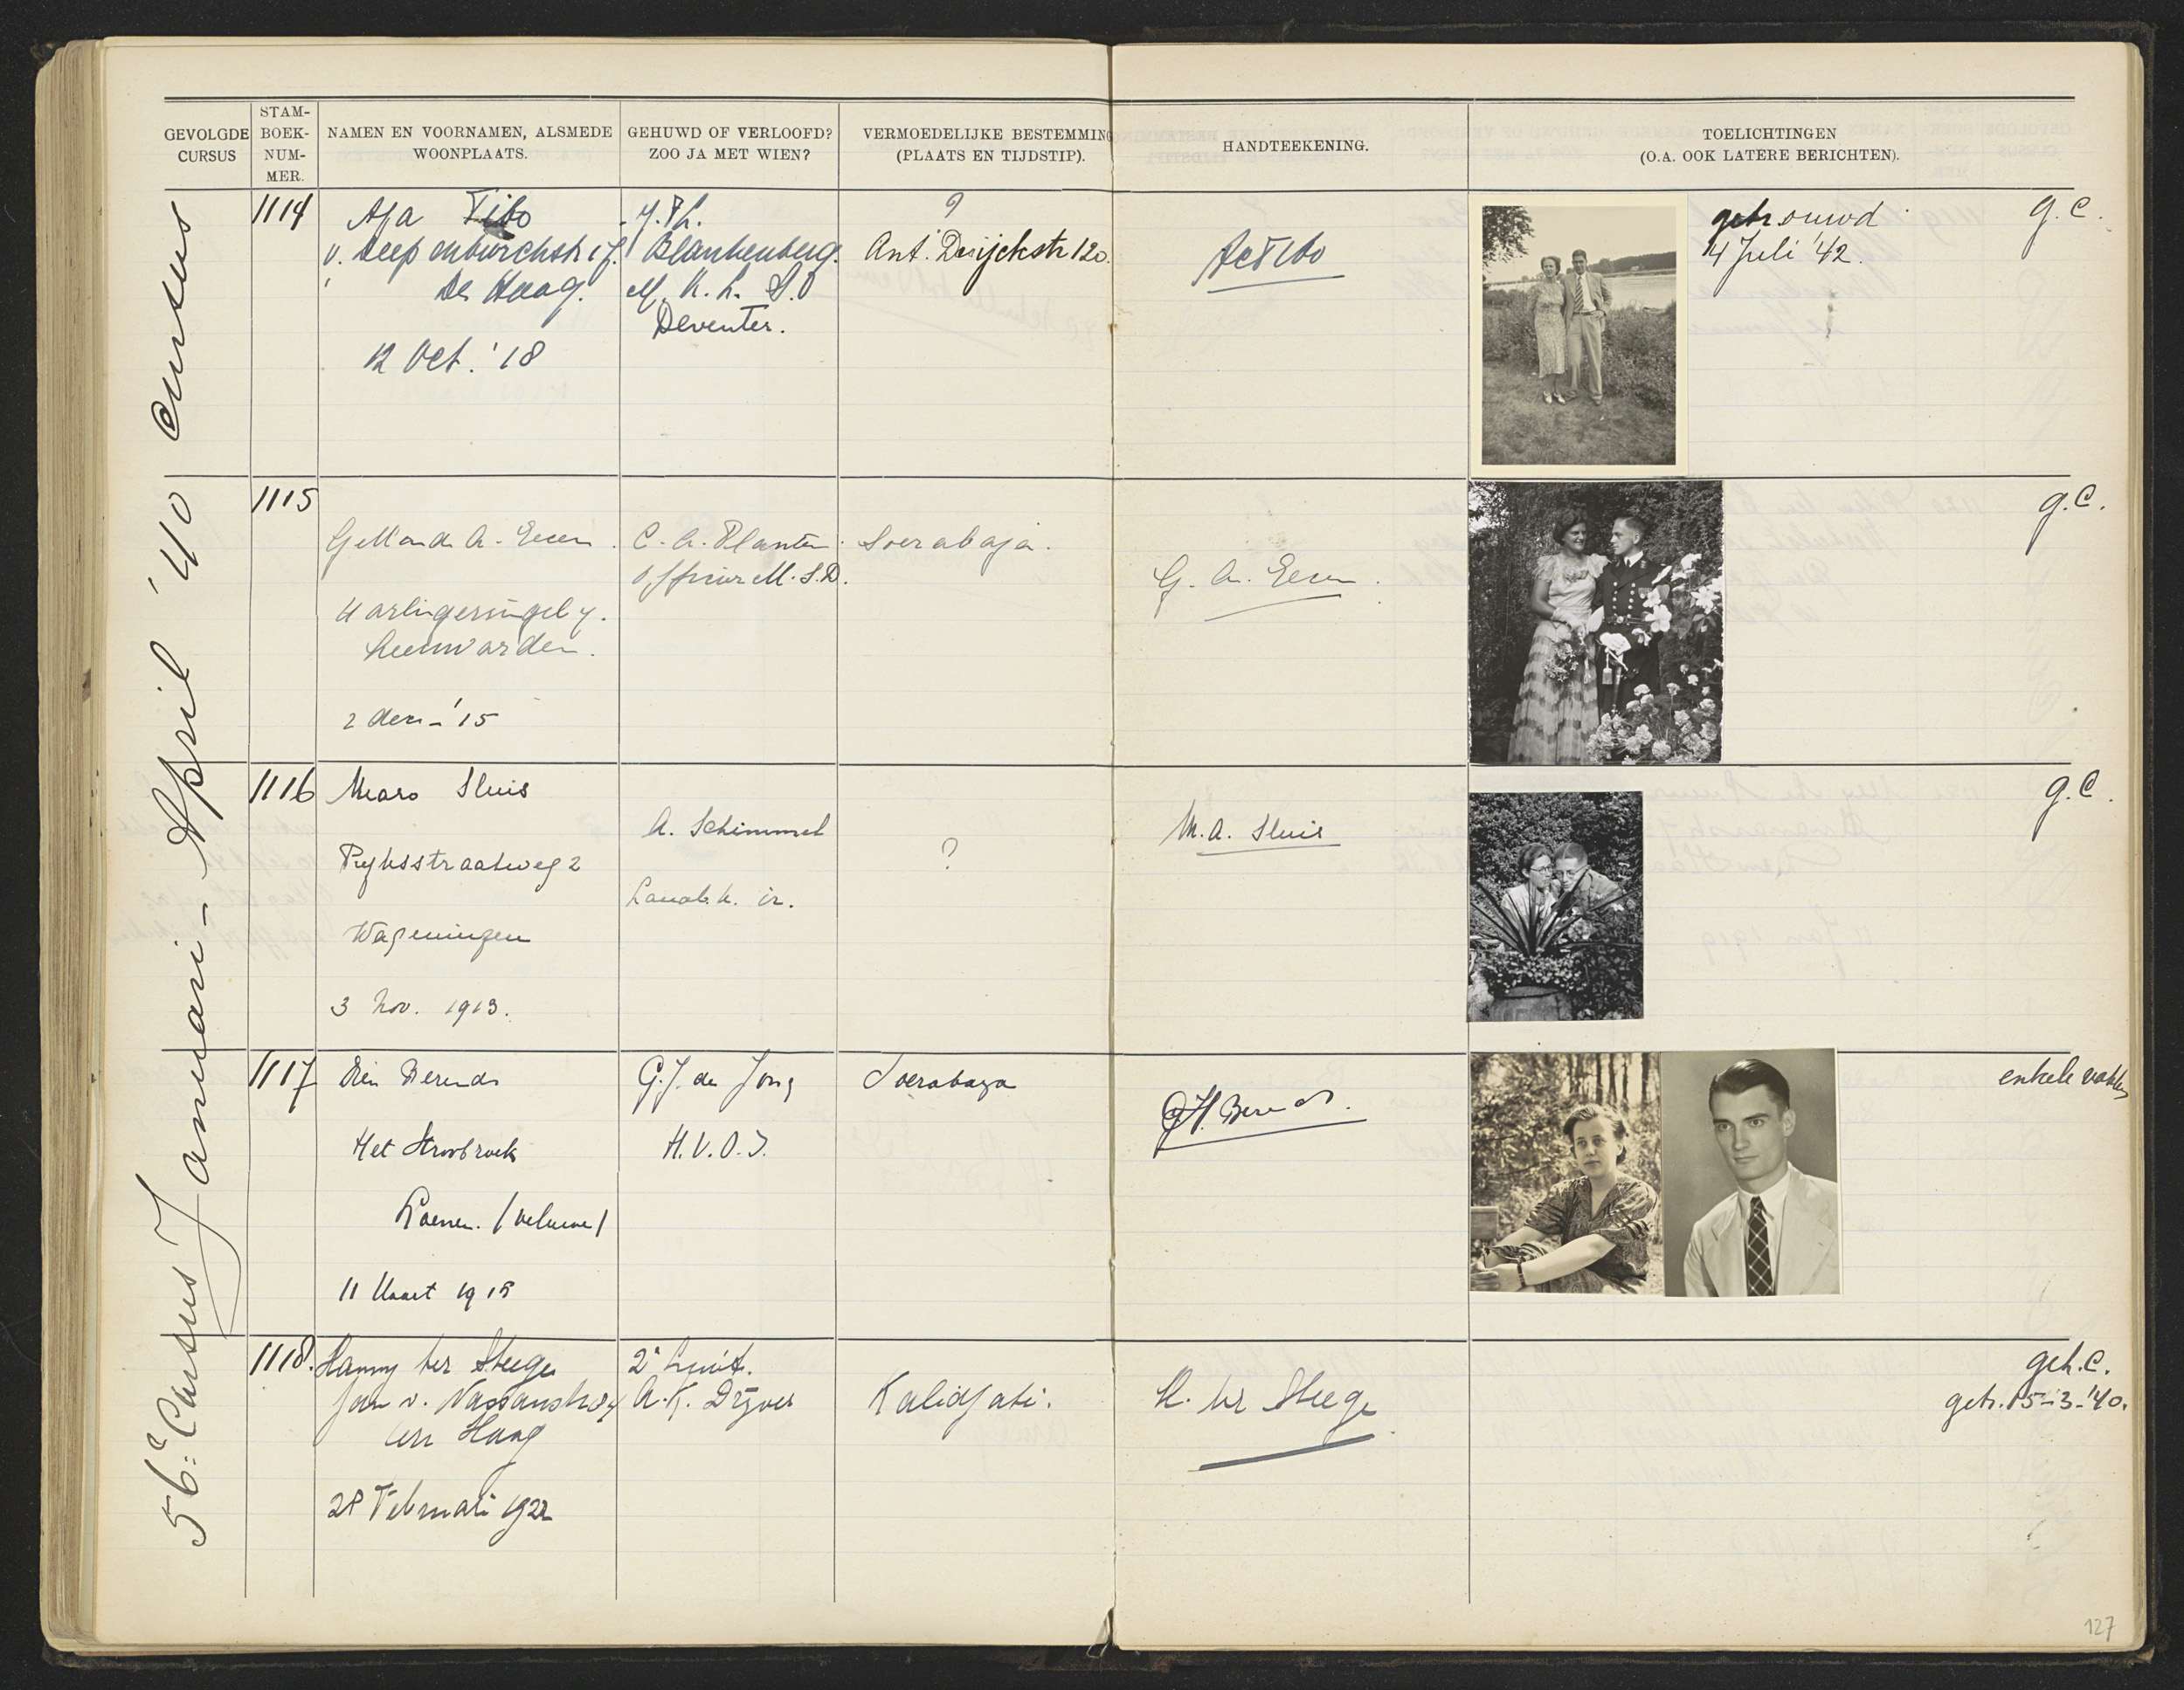 GEVOLGDE CURSUS
STAM-BOEK-NUM-MER.
NAMEN EN VOORNAMEN, ALSMEDE WOONPLAATS.
GEHUWD OF VERLOOFD? ZOO JA MET WIEN?
VERMOEDELIJKE BESTEMMING (PLAATS EN TIJDSTIP).
HANDTEEKENING.
TOELICHTINGEN (O.A. OOK LATERE BERICHTEN).
56e Cursus Januari - April '40 Cursus
1114
Tibo
Den Haag.
12 Oct. '18
Blankenberg.
Deventer.
?
Ant. Duijckstr 120.
getrouwd
4 Juli '42.
g.C.
1115
Harlingersingel 7.
Leeuwarden.
2 dec - '15
C. A. Planten.
Officier M.S.D.
Soerabaja.
G. A. Eecen.
g.C.
1116
Sluis
Rijksstraatweg 2
Wageningen
3 Nov. 1913.
A. Schimmel
Landb.k. ir.
?
M. A. Sluis
g.C.
1117
Dien Berends
Het Stroobroek
Loenen. (Veluwe)
11 Maart 1915
G.J. de Jong
H.V.O.I.
Soerabaya
G.H. Berends.
enkele vakken
1118.
Hanny ter Steege
Jan v. Nassaustr
Den Haag
28 Februari 1922
2e Luit.
A.K. Dijver
Kalidjati.
H. ter Steege
geh.C.
getr. 15-3-'40.
127